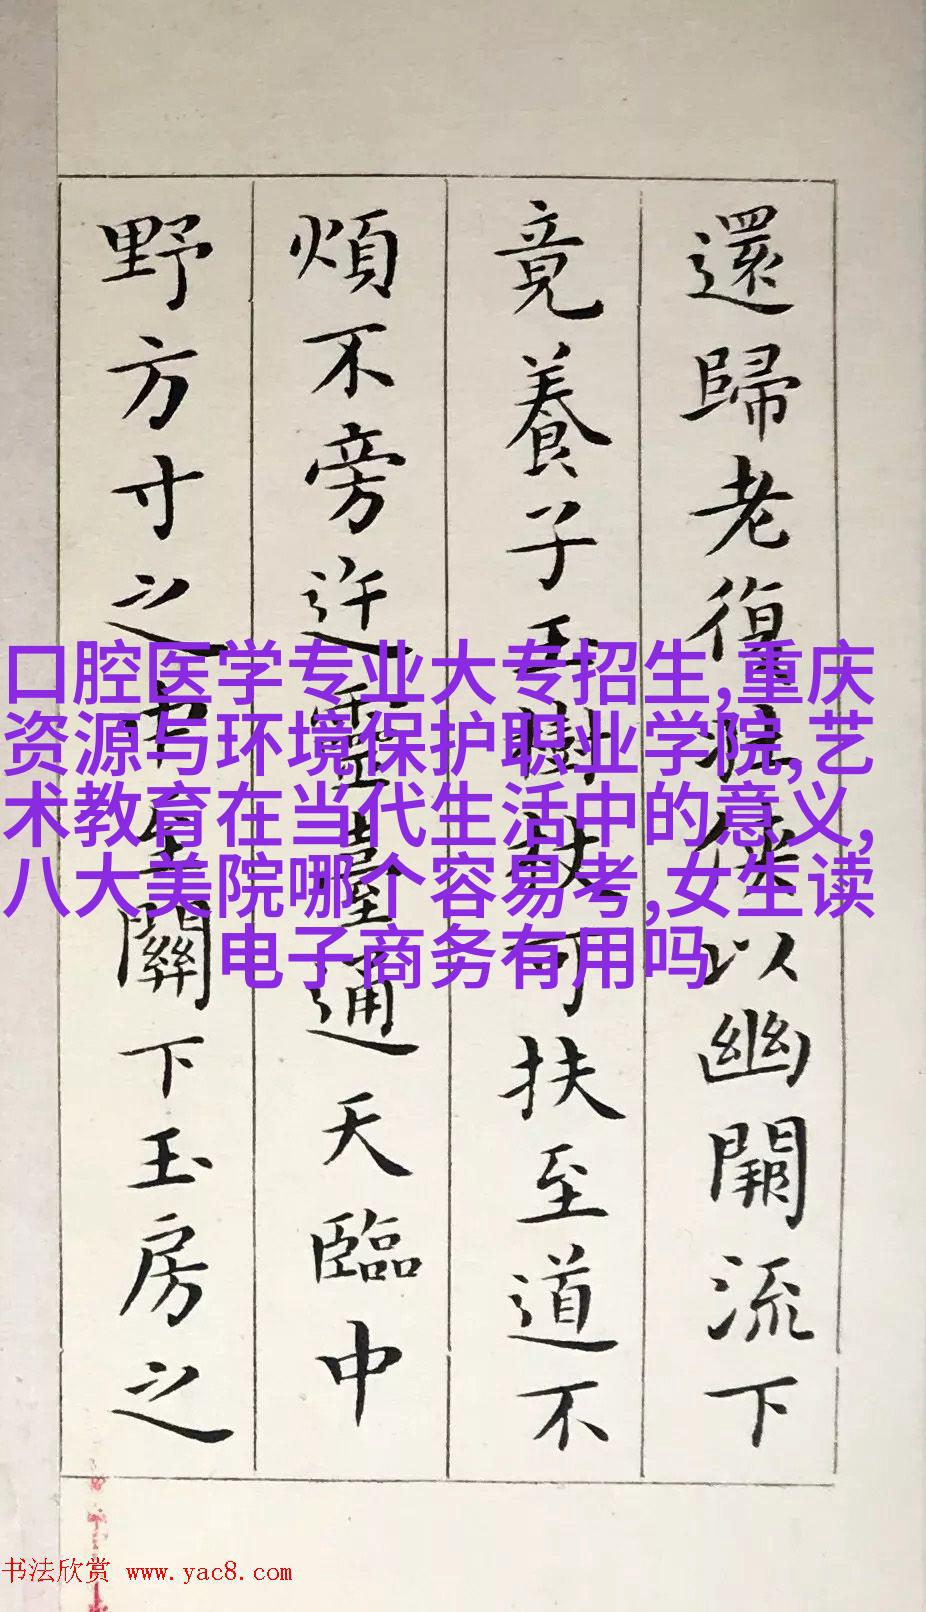 還歸老復壯俠以幽闕流下
竟養子玉樹杖可扶至道不
煩不旁迕靈臺通天臨中
野方寸之中至關下玉房之
口腔医学专业大专招生,重庆
资源与环境保护职业学院,艺
术教育在当代生活中的意义,
八大美院哪个容易考,女生读
电子商务有用吗
书法欣赏 www.yac8.com